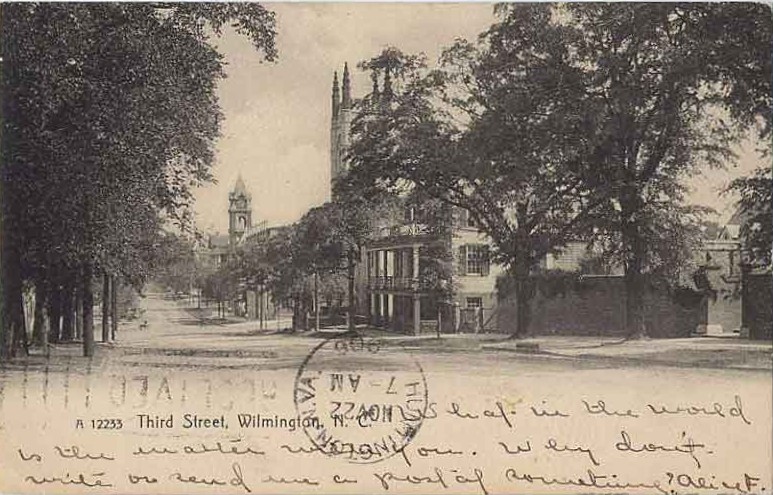 RECEIVED
HUNTINGTON W.VA.
NOV 22
7-AM
1906
A 12233 Third Street, Wilmington, N. C.
What in the world
is the matter with you. Why don't.
write or send me a postal something? Alice F.